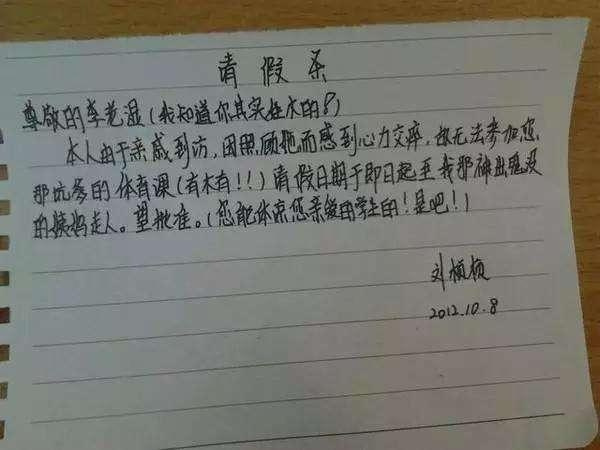 请假条
尊敬的李老湿(我知道你其实姓木的?)
本人由于亲戚到访,因照顾她而感到心力交瘁,故无法参加您
那坑爹的体育课(有木有!!)请假日期于即日起至我那神出鬼没
的姨妈走人。望批准。(您能体谅您亲爱的学生的!是吧!)
刘桢桢
2012.10.8